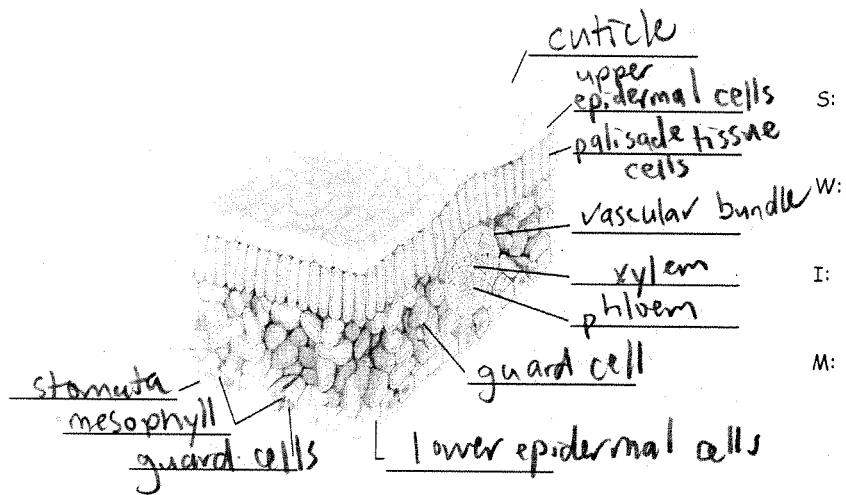 cuticle
upper
epidermal cells
S:
palisade tissue
cells
W:
vascular bundle
xylem
I:
phloem
guard cell
M:
stomata
mesophyll
guard cells
lower epidermal cells